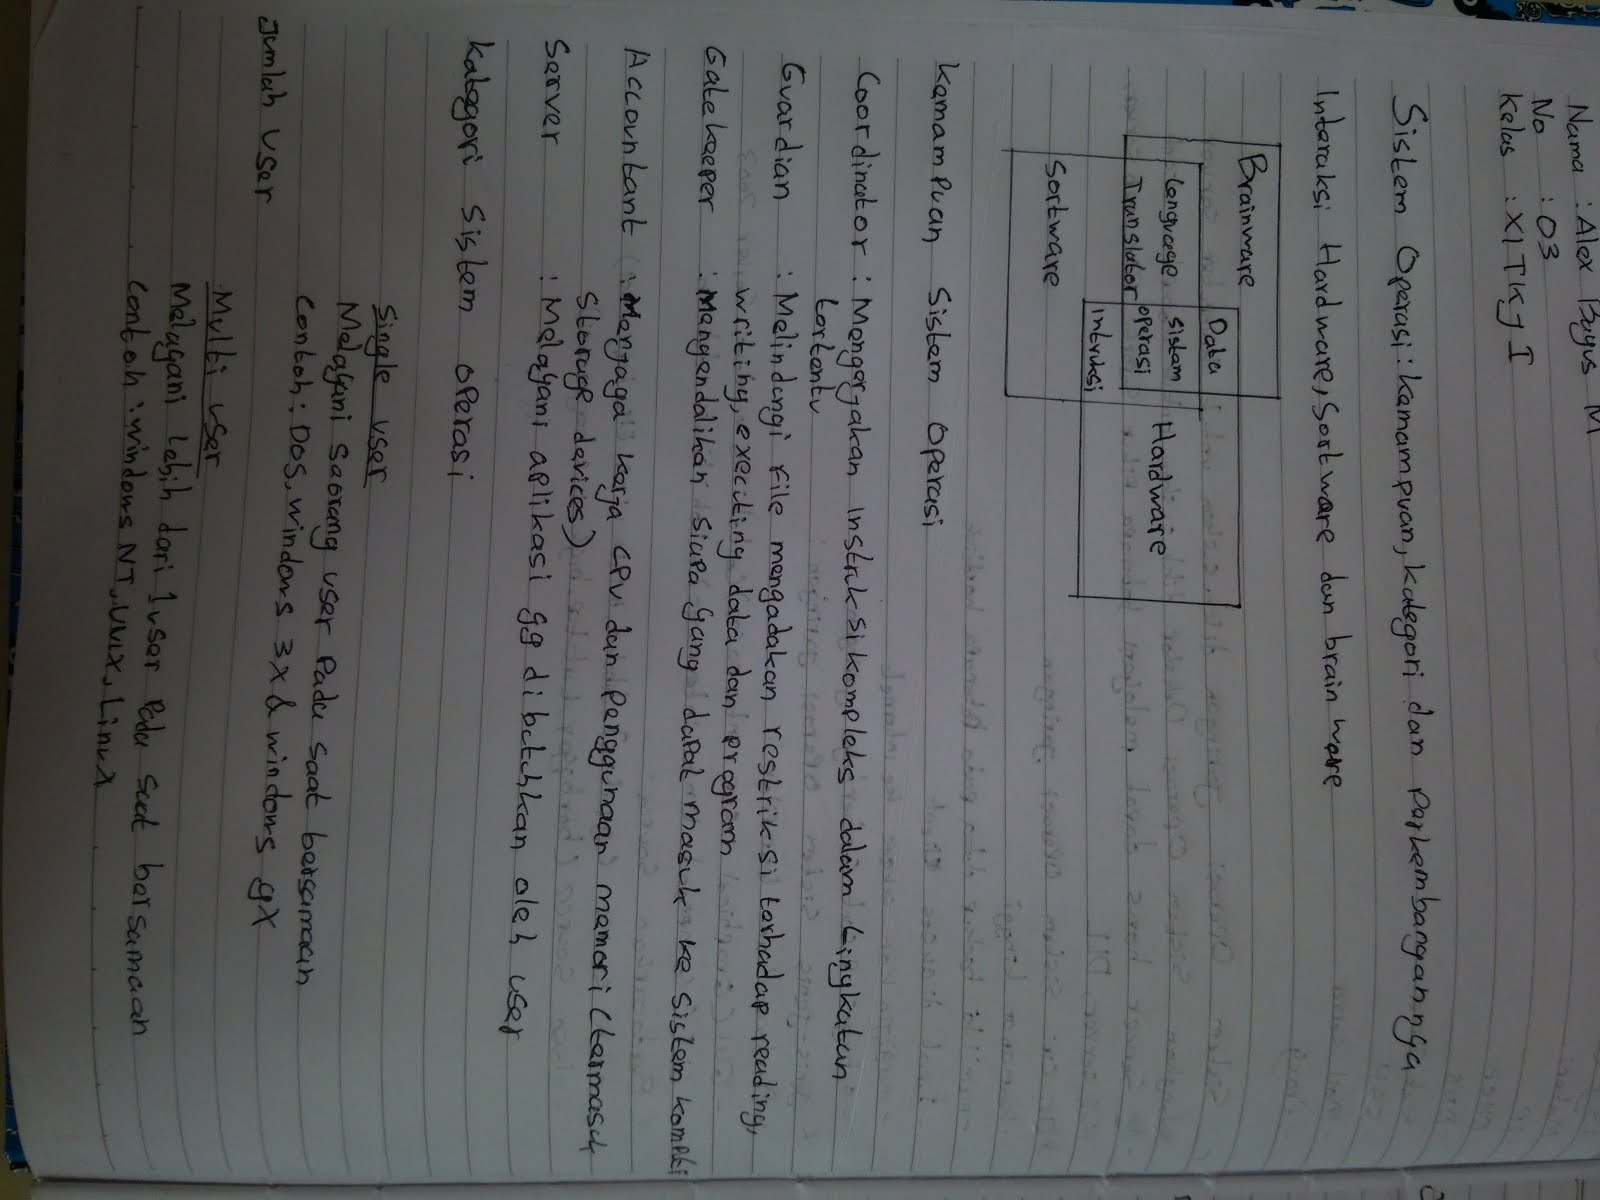 Nama : Alex Bagus M
No : 03
Kelas : XI TKJ I
Sistem Operasi : kemampuan, kategori dan perkembangannya
Interaksi Hardware, Software dan brainware
Brainware
Data
Language Translator
sistem operasi
Intruksi
Hardware
Software
Kemampuan Sistem Operasi
Coordinator : Mengerjakan instriksi kompleks dalam Lingkatan
tertentu
Guardian : Melindungi file mengadakan restriksi terhadap reading,
writing, execiting data dan program
Gatekeeper : Mengendalikan siapa yang dapat masuk ke sistem
Accountant : Mengaga kerja CPU dan penggunaan memori (termasuk
storage devices)
Server : Melayani aplikasi yg dibutuhkan oleh user
Kategori Sistem operasi
Jumlah user
Single user
Melayani seorang user pada saat bersamaan
Contoh : DOS, windows 3x & windows 9x
Multi user
Melayani lebih dari 1 user pada saat bersamaan
Contoh : windows NT, Unix, Linux